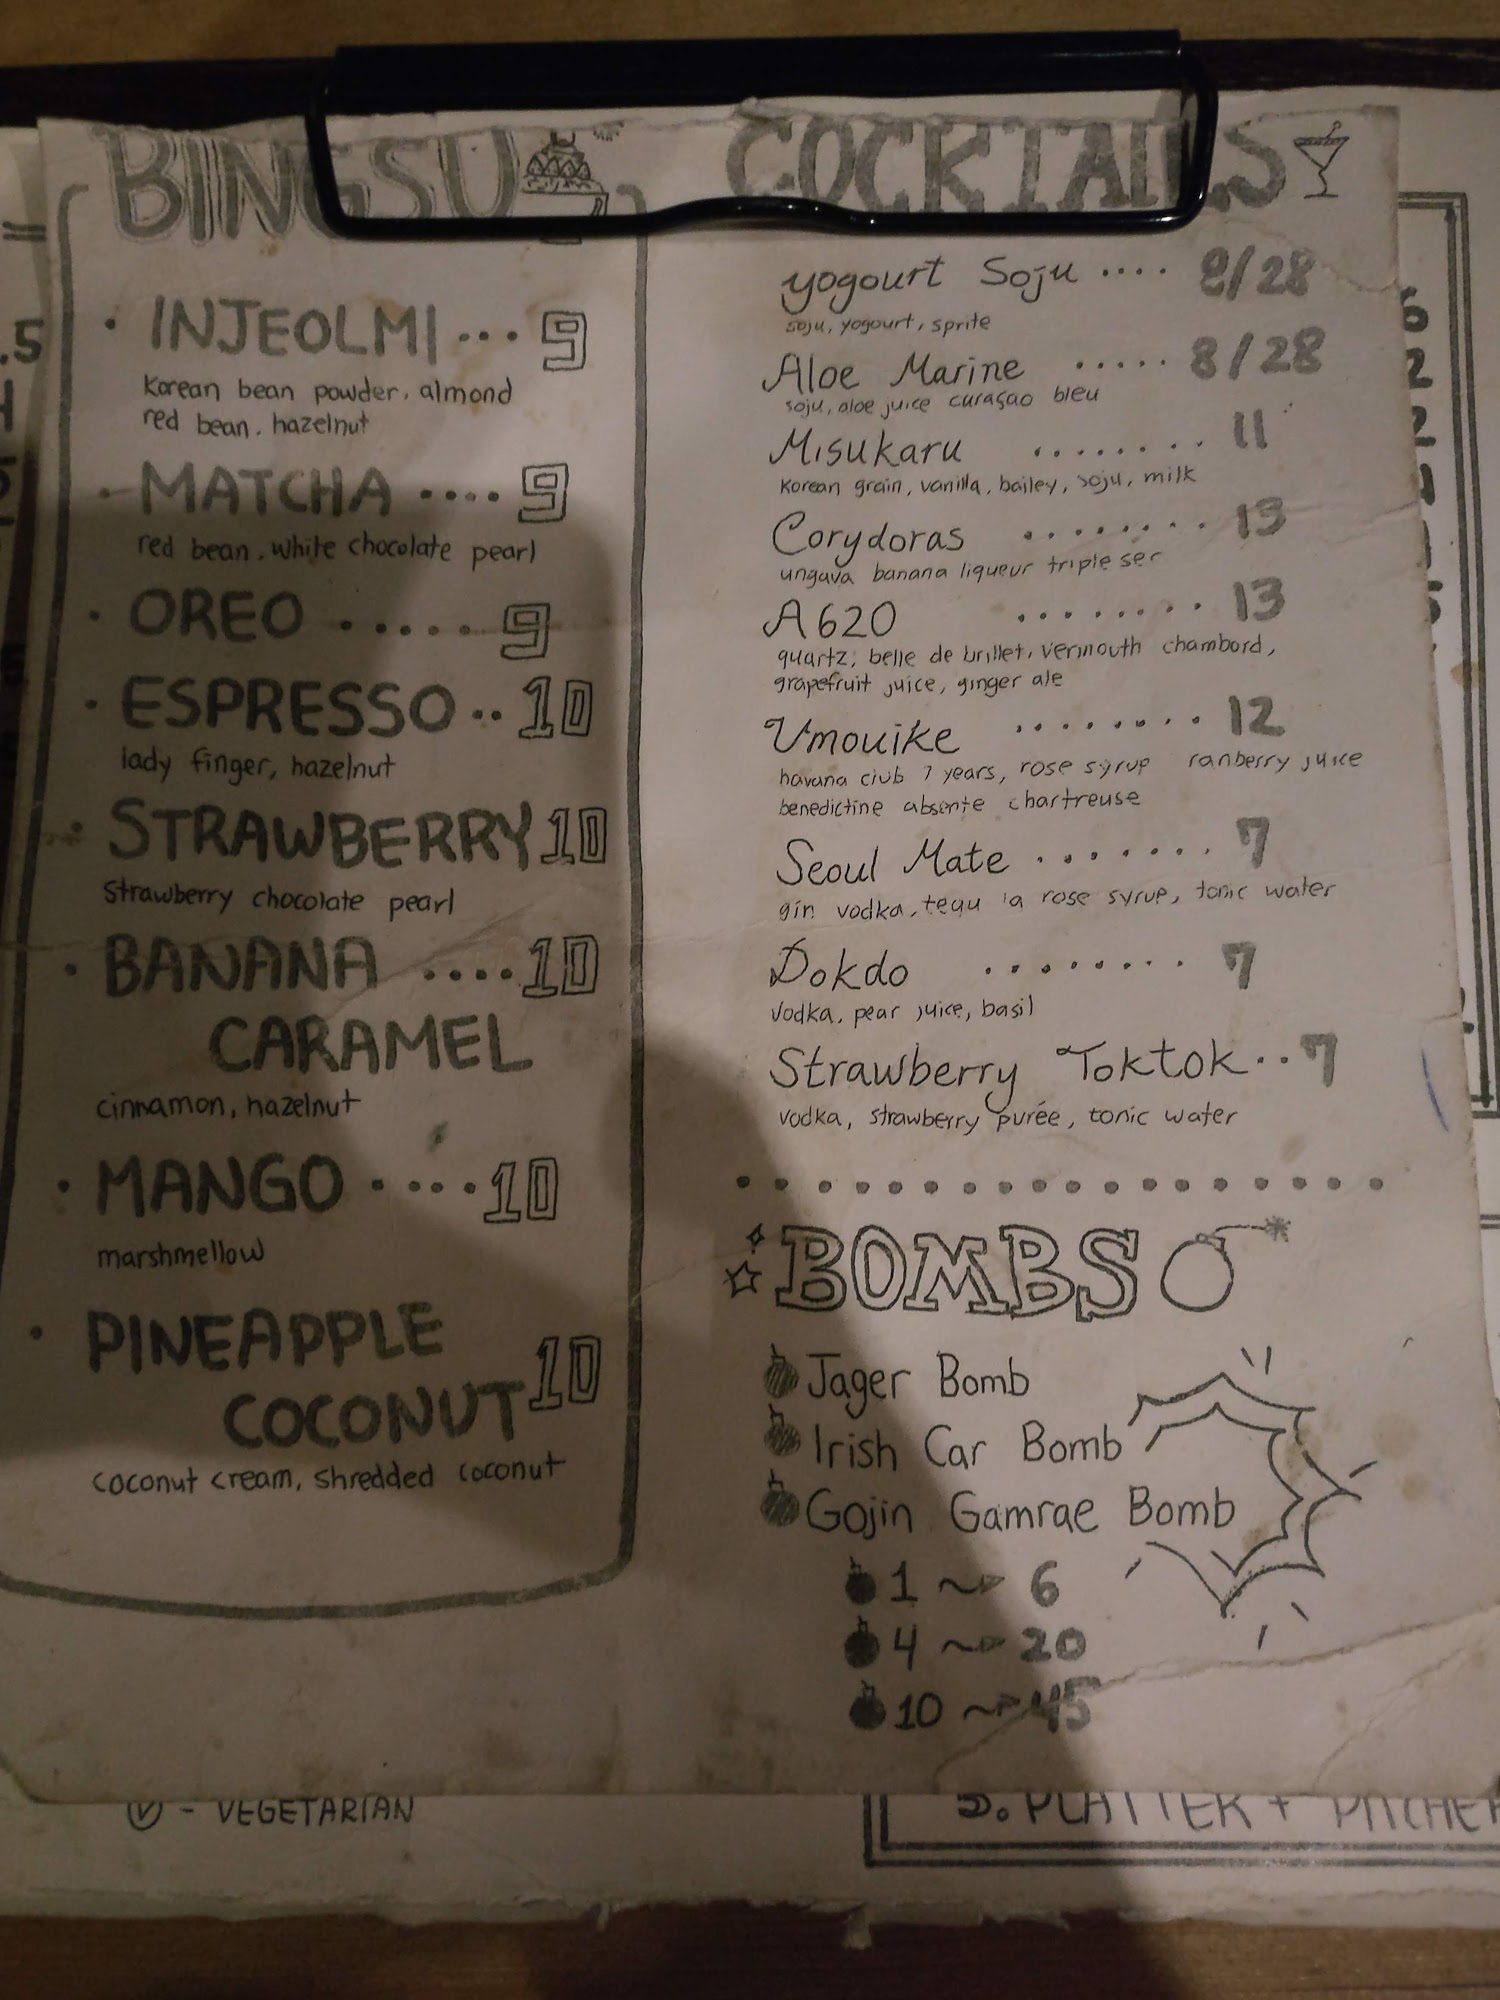 BINGSU
• INJEOLMI ... 9
Korean bean powder, almond
red bean, hazelnut
• MATCHA .... 9
red bean, white chocolate pearl
• OREO ..... 9
• ESPRESSO .. 10
lady finger, hazelnut
• STRAWBERRY 10
Strawberry chocolate pearl
• BANANA .... 10
CARAMEL
cinnamon, hazelnut
• MANGO .... 10
marshmellow
• PINEAPPLE
COCONUT 10
coconut cream, shredded coconut
COCKTAILS
yogourt Soju .... 8/28
soju, yogourt, sprite
Aloe Marine ..... 8/28
soju, aloe juice curaçao bleu
Misukaru ....... 11
Korean grain, vanilla, bailey, soju, milk
Corydoras ....... 13
ungava banana liqueur triple sec
A620 ....... 13
quartz, belle de brillet, vermouth chambord,
grapefruit juice, ginger ale
Umouike ....... 12
havana club 7 years, rose syrup ranberry juice
benedictine absente chartreuse
Seoul Mate ....... 7
gin vodka, tequ la rose syrup, tonic water
Dokdo ........ 7
vodka, pear juice, basil
Strawberry Toktok .. 7
vodka, strawberry purée, tonic water
BOMBS
Jager Bomb
Irish Car Bomb
Gojin Gamrae Bomb
1 6
4 20
10 45
Ⓥ - VEGETARIAN
5. PLATTER + PITCHER